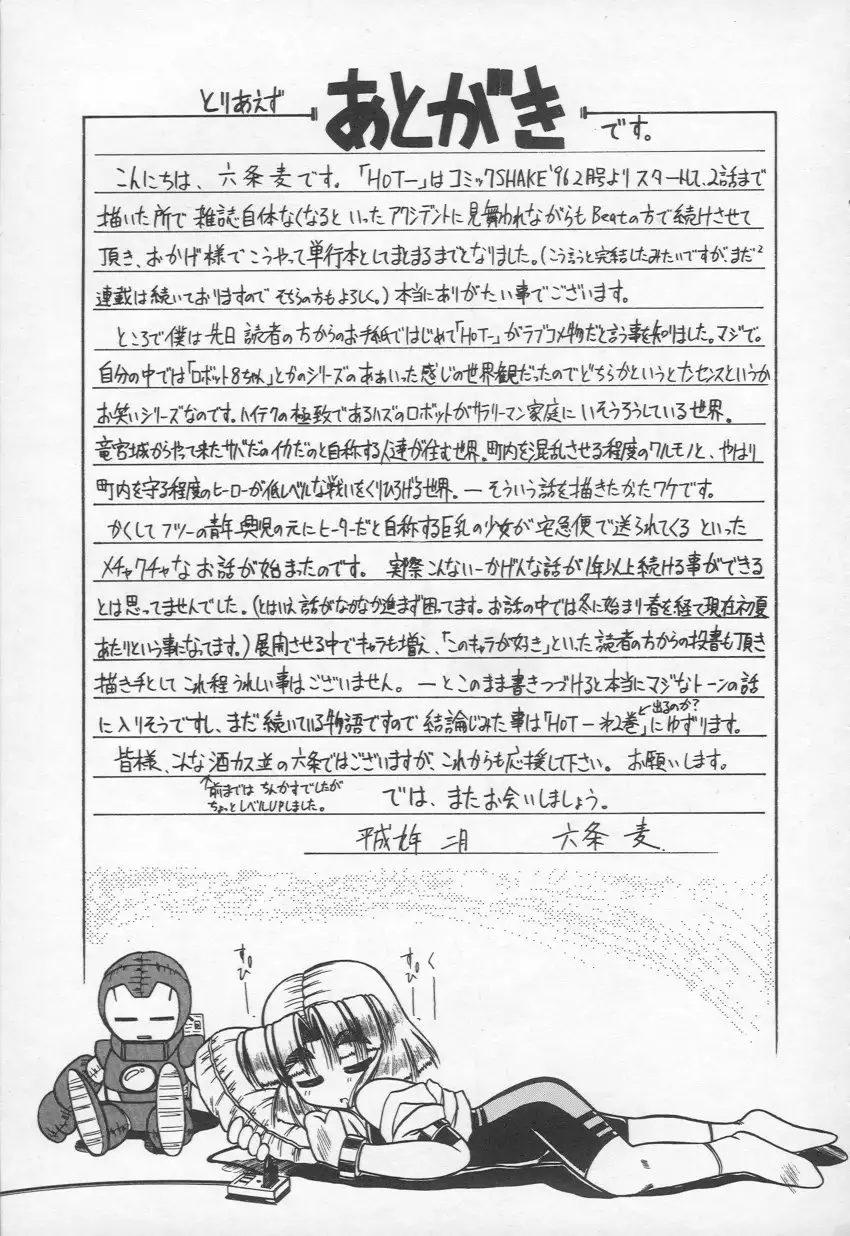 とりあえず
あとがき
です。
こんにちは、六条麦です。「HOT―」はコミックSHAKE'96 2月号よりスタートして、2話まで
描いた所で雑誌自体なくなるといったアクシデントに見舞われながらもBeatの方で続けさせて
頂き、おかげ様でこうやって単行本としてまとまるまでとなりました。(こう言うと完結したみたいですが、まだ2
連載は続いておりますのでそちらの方もよろしく。)本当にありがたい事でございます。
ところで僕は先日読者の方からのお手紙ではじめて「HOT―」がラブコメ物だと言う事を知りました。マジで。
自分の中では「ロボット8ちゃん」とかのシリーズのあぁいった感じの世界観だったのでどちらかというとナンセンスというか
お笑いシリーズなのです。ハイテクの極致であるハズのロボットがサラリーマン家庭にいそうろうしている世界。
竜宮城からやって来たサバだのイカだのと自称する人達が住む世界。町内を混乱させる程度のワルモノと、やはり
町内を守る程度のヒーローが低レベルな戦いをくりひろげる世界。―そういう話を描きたかったワケです。
かくしてフツーの青年・興児の元にヒーターだと自称する巨乳の少女が宅急便で送られてくるといった
メチャクチャなお話が始まったのです。実際こんないーかげんな話が1年以上続ける事ができる
とは思ってませんでした。(とはいえ話がなかなか進まず困ってます。お話の中では冬に始まり春を経て現在初夏
あたりという事になってます。)展開させる中でキャラも増え、「このキャラが好き」といった読者の方からの投書も頂き
描き手としてこれ程うれしい事はございません。―とこのまま書きつづけると本当にマジなトーンの話
に入りそうですし、まだ続いている物語ですので結論じみた事は「HOT―第2巻」にゆずります。
←出るのか?
皆様、こんな酒カス並の六条ではございますが、これからも応援して下さい。お願いします。
↑前まではちんかすでしたが
ちょっとレベルUPしました。
では、またお会いしましょう。
平成九年 二月 六条 麦
すぴー
すぴー
く